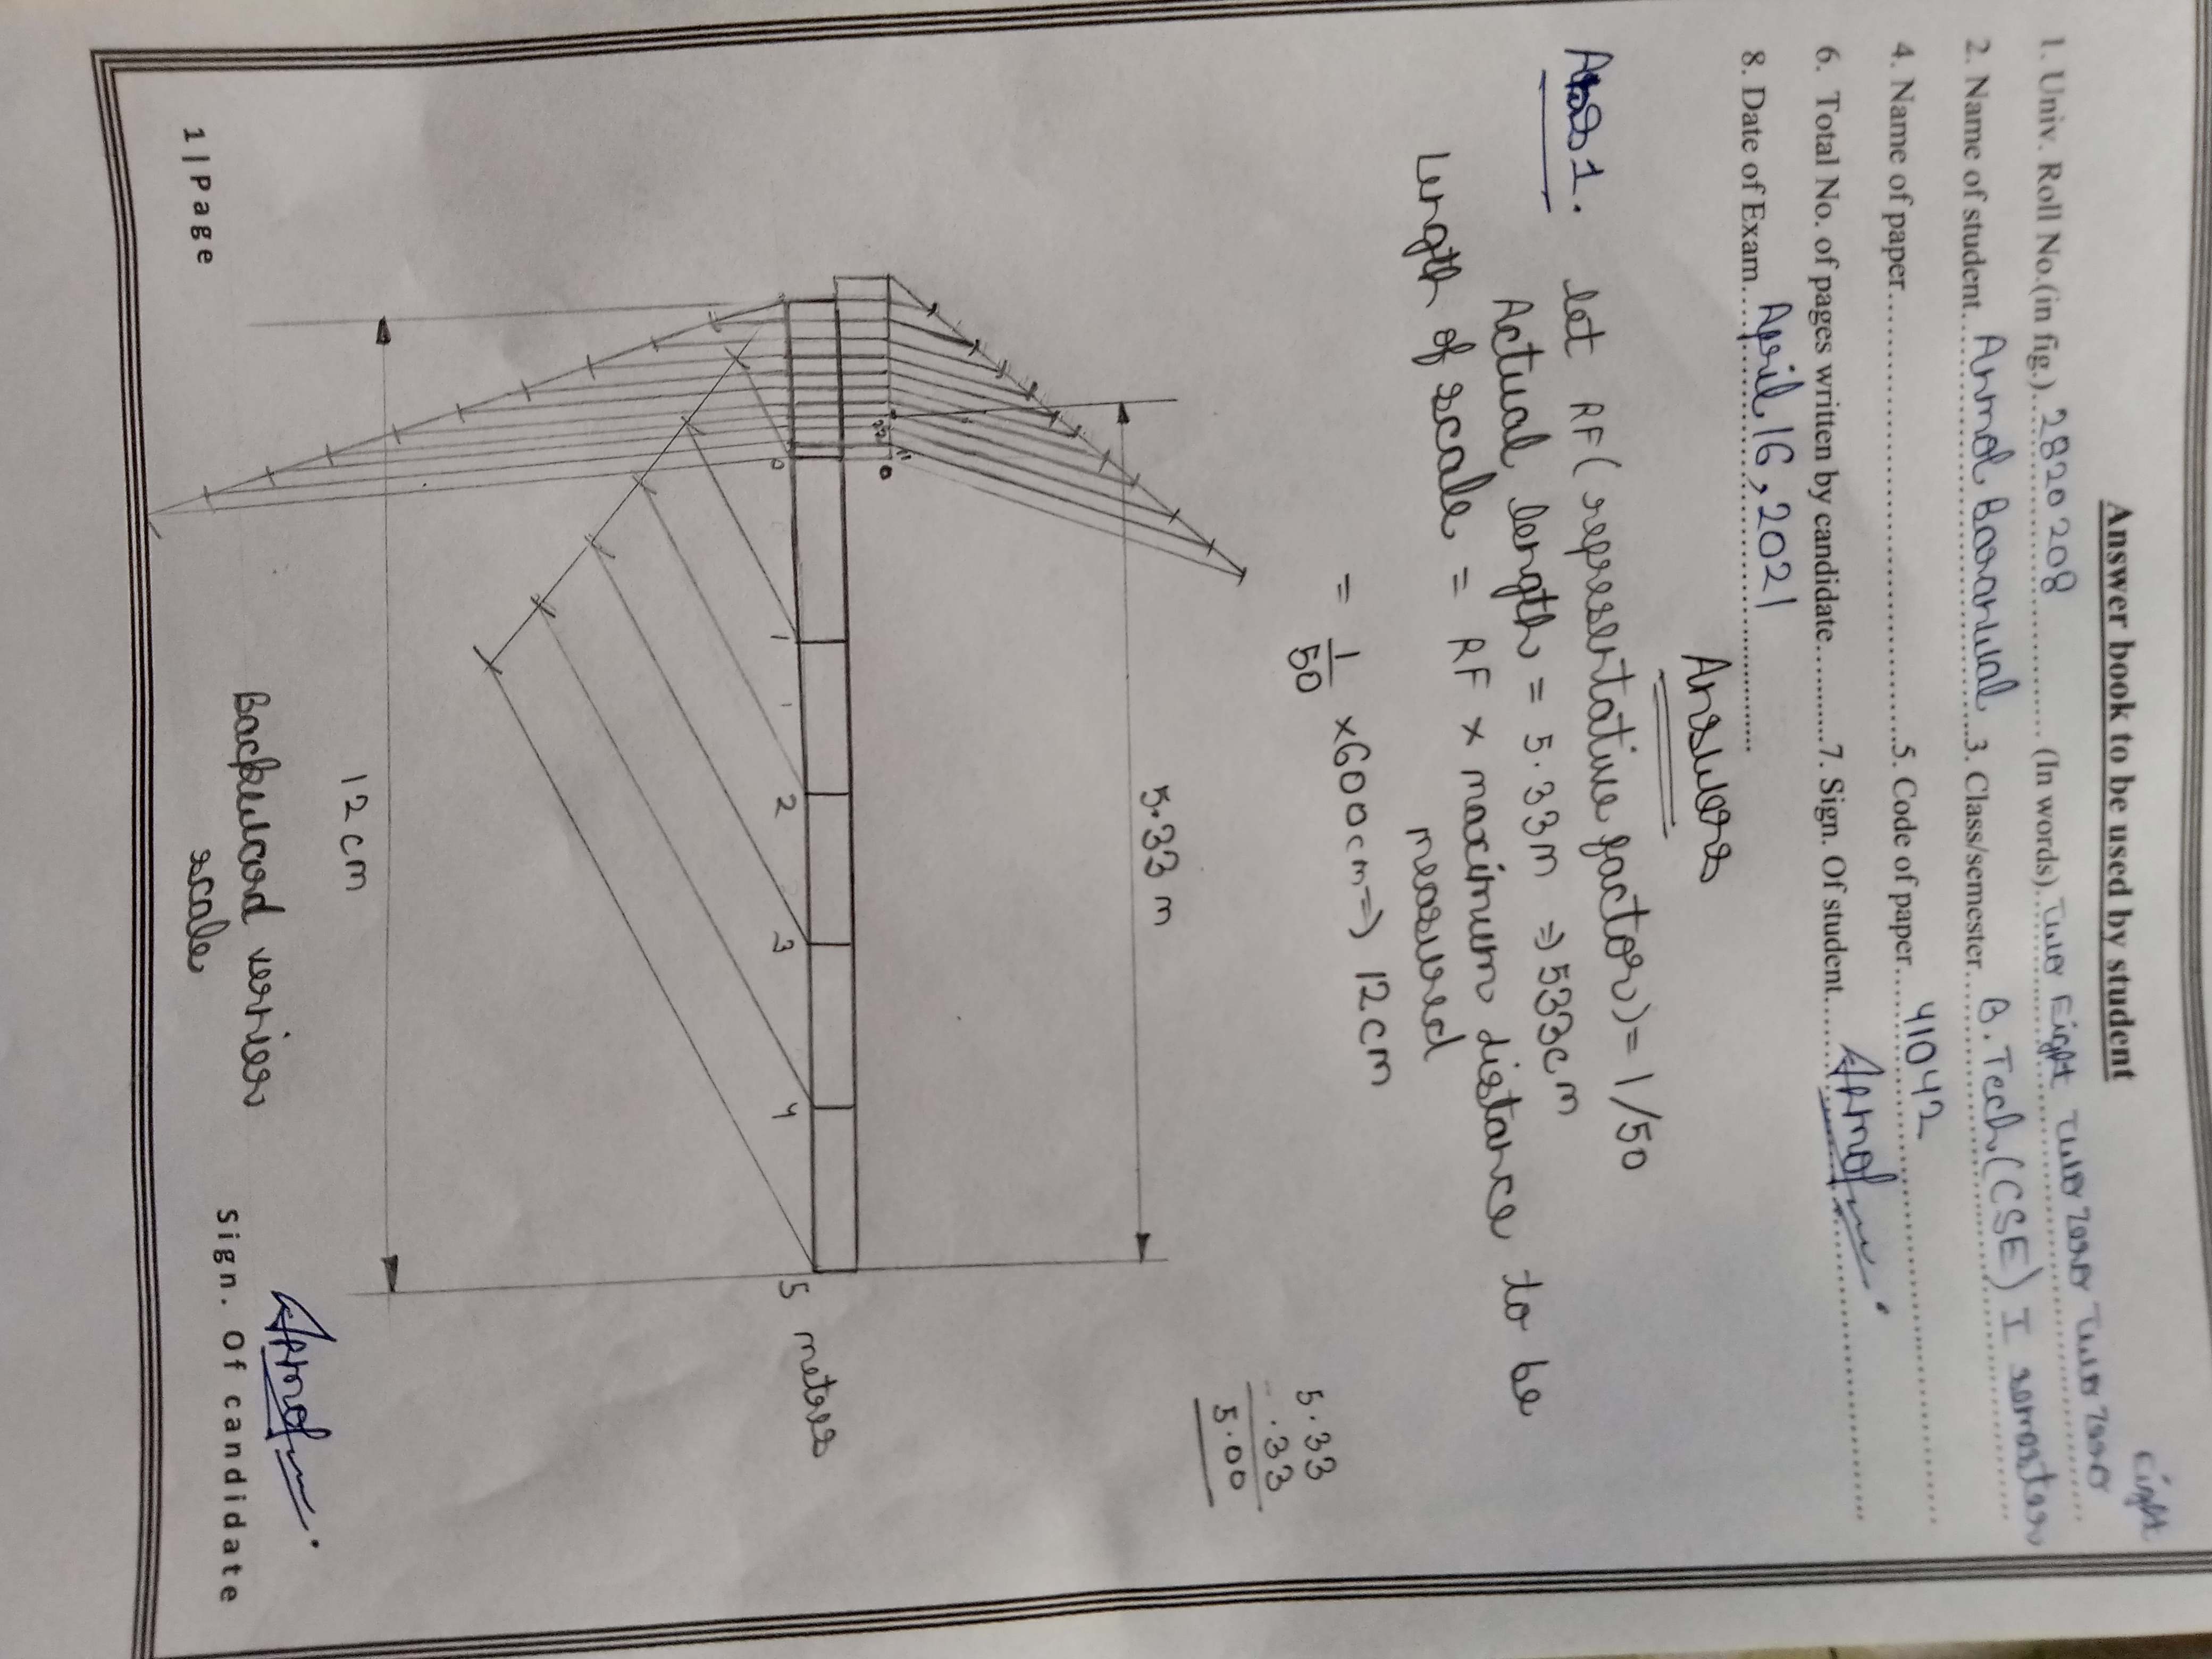 Answer book to be used by student
Eight
1. Univ. Roll No.(in fig.)...2820208............ (In words)...Two Eight Two Zero Two Zero
2. Name of student....Anmol Baranwal...3. Class/semester...B.Tech(CSE) I semester
4. Name of paper.......................................5. Code of paper....41042..................
6. Total No. of pages written by candidate...........7. Sign. Of student....Anmol.............
8. Date of Exam...April 16, 2021...........
Answers
Ans1. let RF (representative factor) = 1/50
Actual length = 5.33m ⇒ 533cm
Length of scale = RF × maximum distance to be
measured
= 1/50 × 600cm ⇒ 12cm
5.33
- .33
5.00
5.33 m
11
0
0 1 2 3 4 5 meters
12 cm
Backward vernier
scale
Anmol
1 | Page
Sign. Of candidate